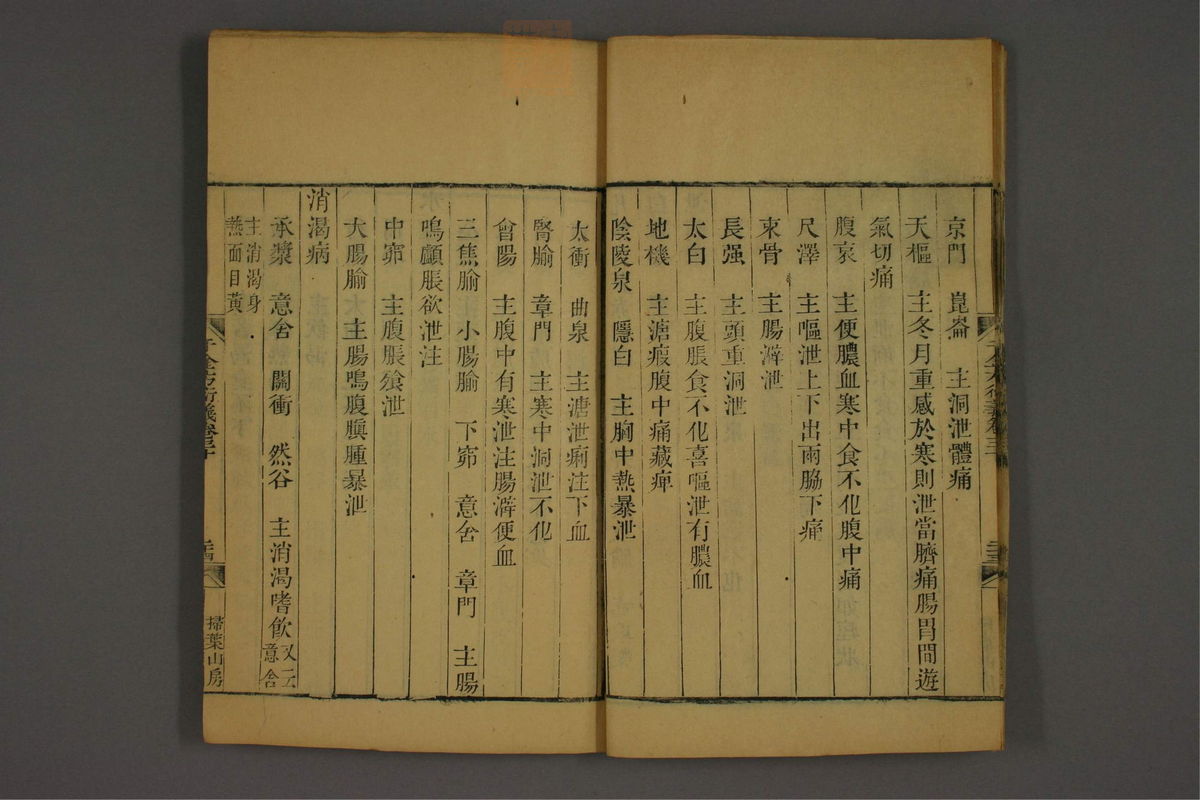 京門　崑崙　主洞泄體痛
天樞　主冬月重感於寒則泄當臍痛腸胃間遊
氣切痛
腹哀　主便膿血寒中食不化腹中痛
尺澤　主嘔泄上下出兩脇下痛
束骨　主腸澼泄
長强　主頭重洞泄
太白　主腹脹食不化喜嘔泄有膿血
地機　主溏瘕腹中痛藏痺
陰陵泉　隱白　主胸中熱暴泄
太衝　曲泉　主溏泄痢注下血
腎腧　章門　主寒中洞泄不化
會陽　主腹中有寒泄注腸澼便血
三焦腧　小腸腧　下窌　意舍　章門　主腸
鳴顱脹欲泄注
中窌　主腹脹飧泄
大腸腧　主腸鳴腹䐜腫暴泄
消渴病
承漿　意舍　關衝　然谷　主消渴嗜飲又云意舍
主消渴身
熱面目黃
千金方衍義卷三十
二十四
掃葉山房